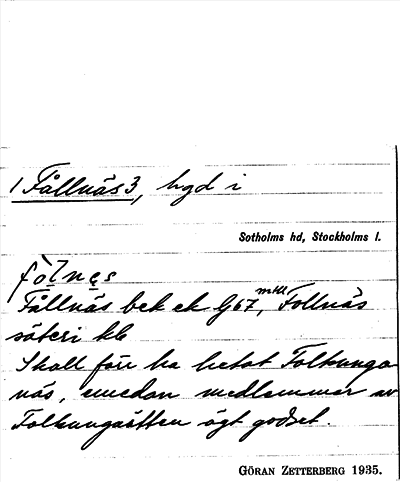 1 Fållnäs 3, hgd i
Sotholms hd, Stockholms l.
fò̀lnes
Fållnäs bek ek G 67, mtkl Follnäs
säteri kb
Skall förr ha hetat Folkunga
näs, emedan medlemmar av
Folkungaätten ägt godset.
GÖRAN ZETTERBERG 1935.